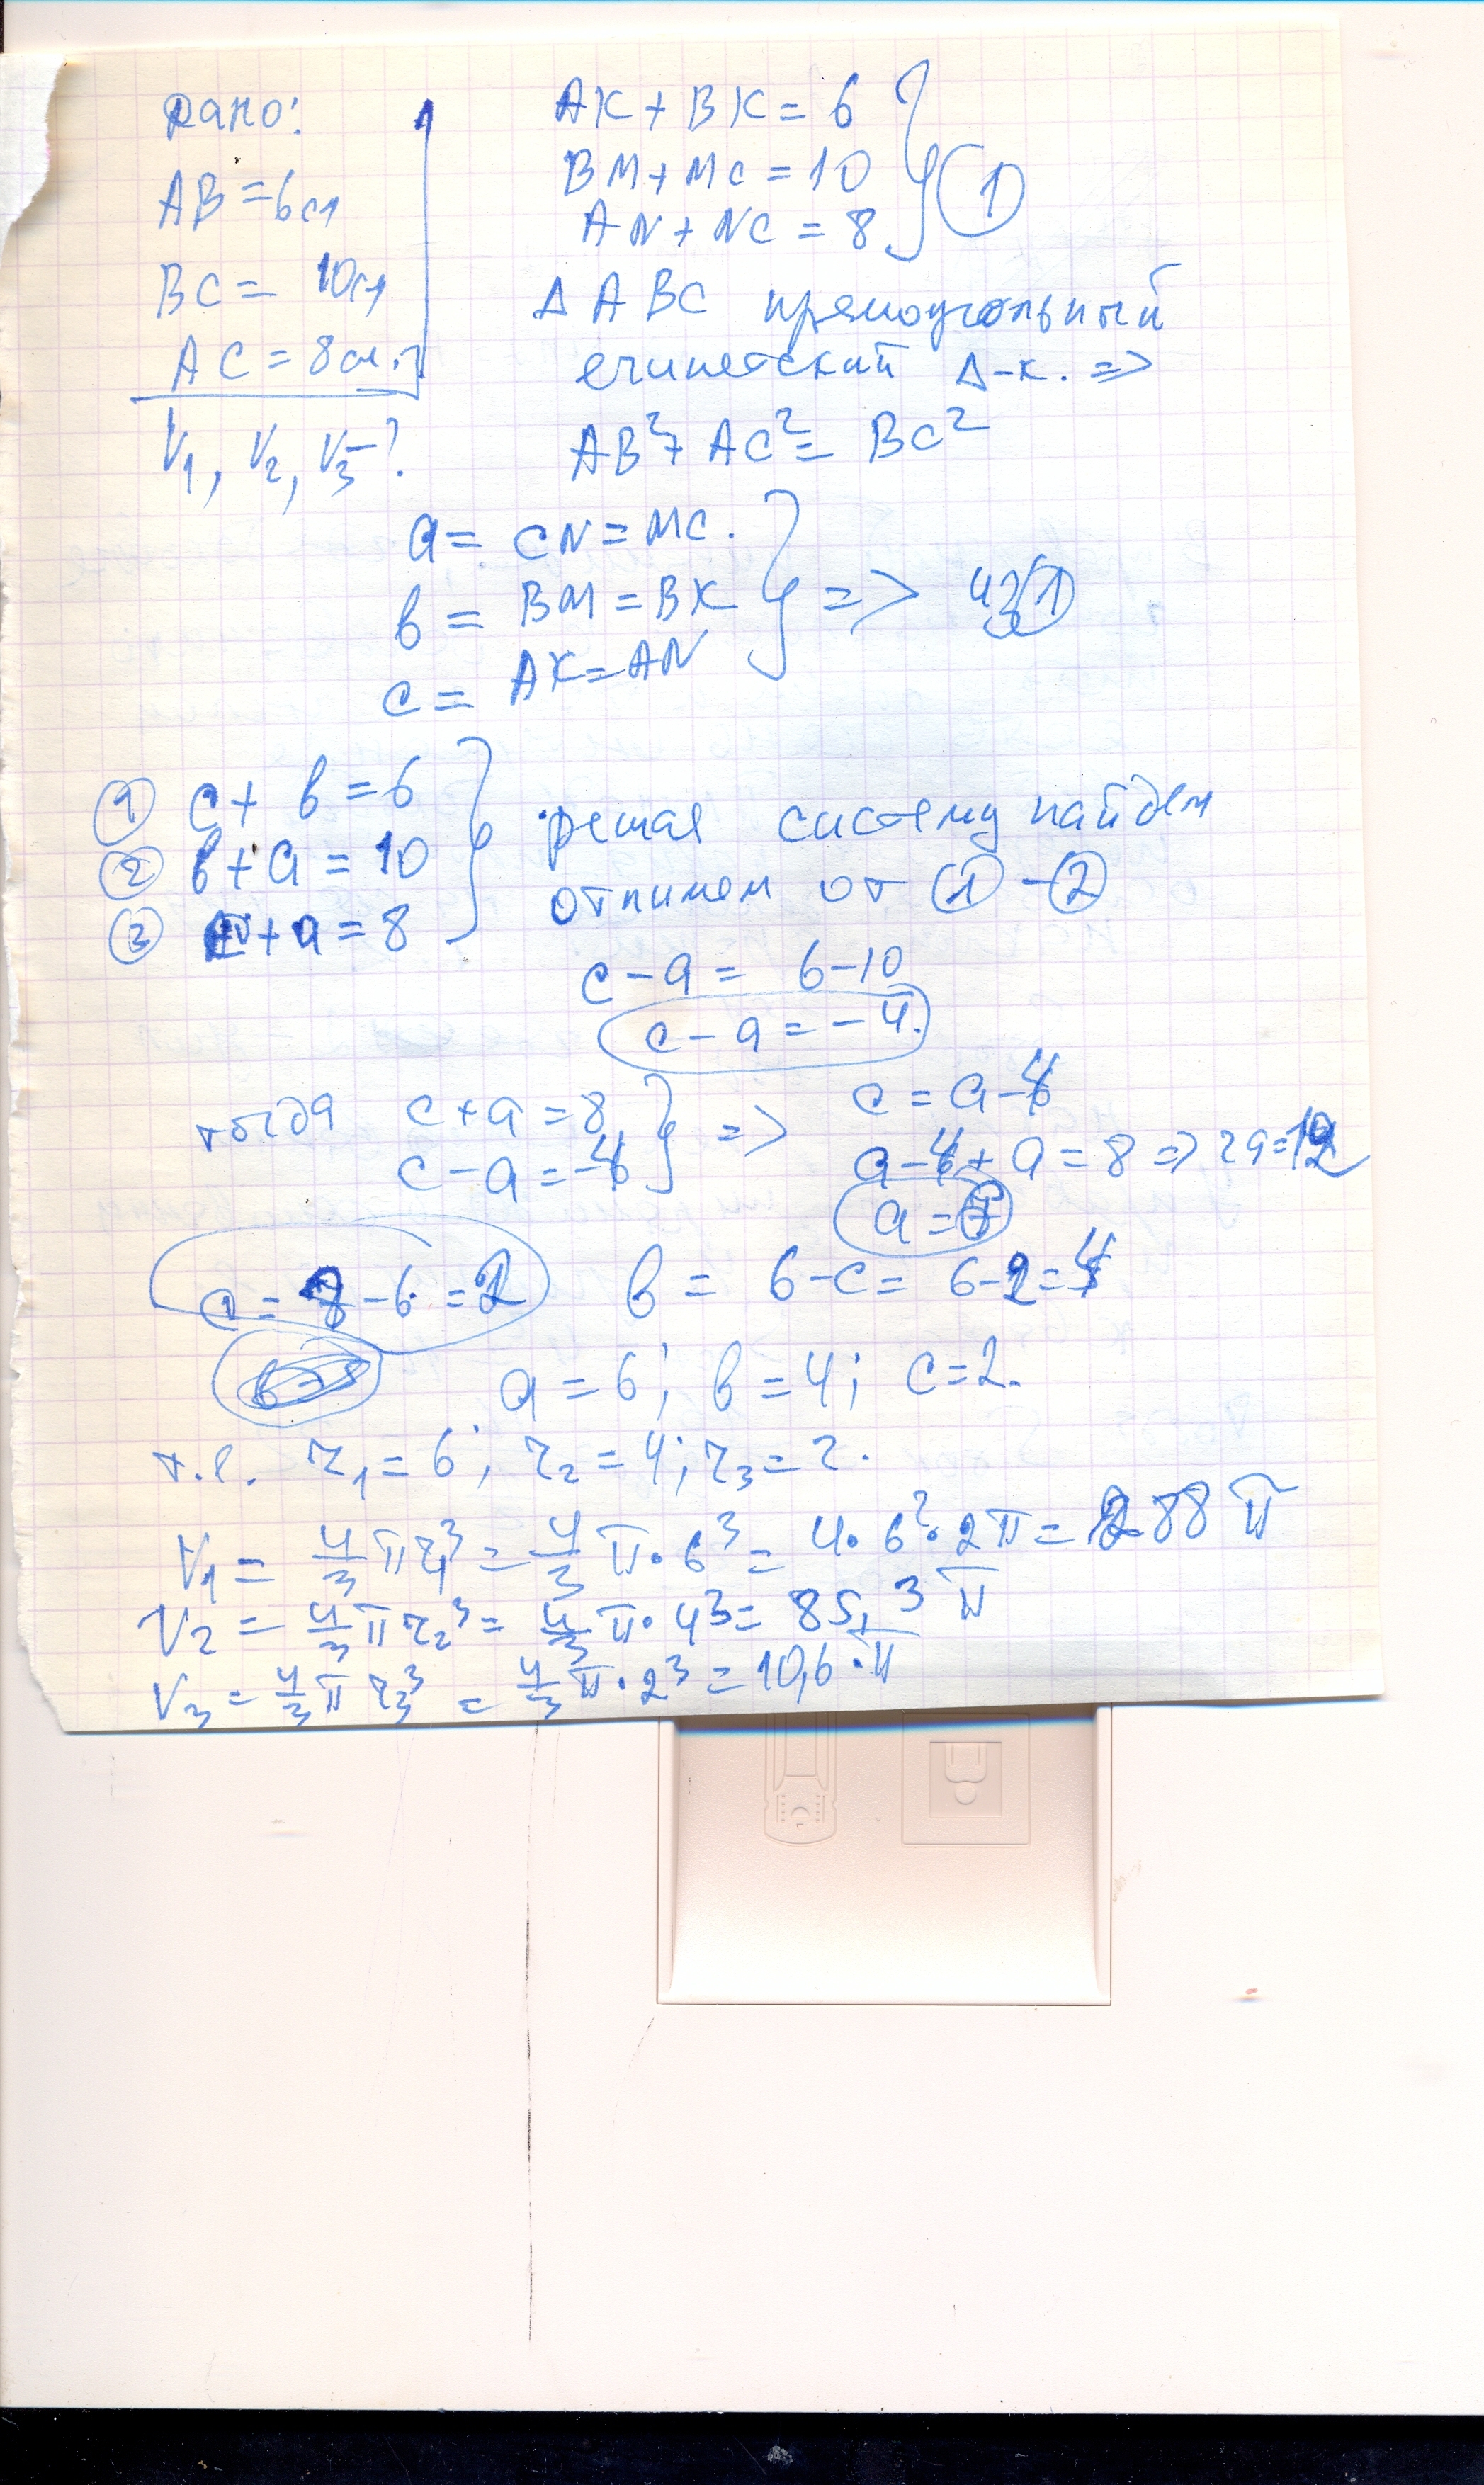 Дано:
AB = 6см
BC = 10см
AC = 8см.
V₁, V₂, V₃ - ?
AK + BK = 6
BM + MC = 10
AN + NC = 8
1
Δ ABC прямоугольный
египетский Δ-к. =>
AB² + AC² = BC²
a = CN = MC.
b = BM = BK
c = AK = AN
=> из 1
1 c + b = 6
2 b + a = 10
3 c + a = 8
решая систему найдем
отнимем от 1 - 2
c - a = 6 - 10
c - a = - 4.
тогда c + a = 8
c - a = -4
=>
c = a - 4
a - 4 + a = 8 => 2a = 12
a = 6
c = 8 - 6 = 2 b = 6 - c = 6 - 2 = 4
a = 6; b = 4; c = 2.
т.е. r₁ = 6; r₂ = 4; r₃ = 2.
V₁ = 4/3 π r₁³ = 4/3 π · 6³ = 4 · 6² · 2π = 288 π
V₂ = 4/3 π r₂³ = 4/3 π · 4³ = 85,3 π
V₃ = 4/3 π r₃³ = 4/3 π · 2³ = 10,6 · π